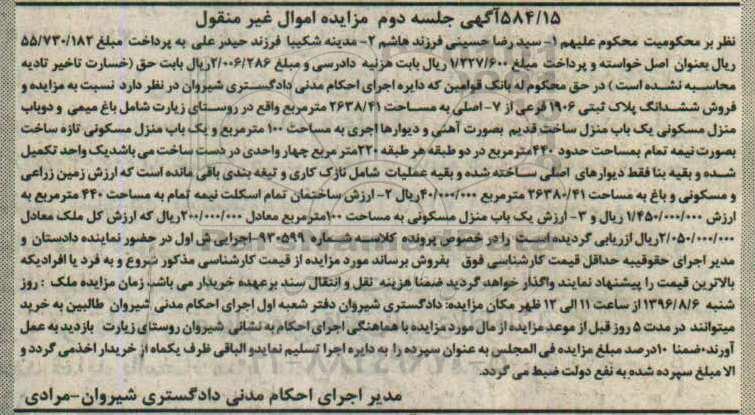 ۵۸۴/۱۵آگهی جلسه دوم مزایده اموال غیر منقول
نظر بر محکومیت محکوم علیهم ۱- سید رضا حسینی فرزند هاشم ۲- مدینه شکیبا فرزند حیدر علی به پرداخت مبلغ ۵۵/۷۳۰/۱۸۲
ریال بعنوان اصل خواسته و پرداخت مبلغ ۱/۲۲۷/۶۰۰ ریال بابت هزینه دادرسی و مبلغ ۲/۰۰۶/۲۸۶ریال بابت حق (خسارت تاخیر تادیه
محاسبه نشده است ) در حق محکوم له بانک قوامین که دایره اجرای احکام مدنی دادگستری شیروان در نظر دارد نسبت به مزایده و
فروش ششدانگ پلاک ثبتی ۱۹۰۶ فرعی از ۷- اصلی به مساحت ۲۶۳۸/۴۱ مترمربع واقع در روستای زیارت شامل باغ میمی و دوباب
منزل مسکونی یک باب منزل ساخت قدیم بصورت آهنی و دیوارها آجری به مساحت ۱۰۰ مترمربع و یک باب منزل مسکونی تازه ساخت
بصورت نیمه تمام بمساحت حدود ۴۴۰مترمربع در دو طبقه هر طبقه ۲۲۰متر مربع چهار واحدی در دست ساخت می باشدیک واحد تکمیل
شده و بقیه بنا فقط دیوارهای اصلی ساخته شده و بقیه عملیات شامل نازک کاری و تیغه بندی باقی مانده است که ارزش زمین زراعی
و مسکونی و باغ به مساحت ۲۶۳۸۰/۴۱ مترمربع ۴۰/۰۰۰/۰۰۰ریال ۲- ارزش ساختمان تمام اسکلت نیمه تمام به مساحت ۴۴۰ مترمربع به
ارزش ۱/۴۵۰/۰۰۰/۰۰۰ ریال و ۳- ارزش یک باب منزل مسکونی به مساحت ۱۰۰مترمربع معادل ۲۰۰/۰۰۰/۰۰۰ریال که ارزش کل ملک معادل
۲/۰۵۰/۰۰۰/۰۰۰ریال ارزیابی گردیده است را در خصوص پرونده کلاسه شماره ۹۳۰۵۹۹-اجرایی ش اول در حضور نماینده دادستان و
مدیر اجرای حقوقیبه حداقل قیمت کارشناسی فوق بفروش برساند مورد مزایده از قیمت کارشناسی مذکور شروع و به فرد یا افرادیکه
بالاترین قیمت را پیشنهاد نمایند واگذار خواهد گردید ضمنا هزینه نقل و انتقال سند برعهده خریدار می باشد زمان مزایده ملک : روز
شنبه ۱۳۹۶/۸/۶ از ساعت ۱۱ الی ۱۲ ظهر مکان مزایده: دادگستری شیروان دفتر شعبه اول اجرای احکام مدنی شیروان طالبین به خرید
میتوانند در مدت ۵ روز قبل از موعد مزایده از مال مورد مزایده با هماهنگی اجرای احکام به نشانی شیروان روستای زیارت بازدید به عمل
آورند۰ضمنا ۱۰درصد مبلغ مزایده فی المجلس به عنوان سپرده را به دایره اجرا تسلیم نمایدو الباقی ظرف یکماه از خریدار اخذمی گردد و
الا مبلغ سپرده شده به نفع دولت ضبط می گردد.
مدیر اجرای احکام مدنی دادگستری شیروان-مرادی